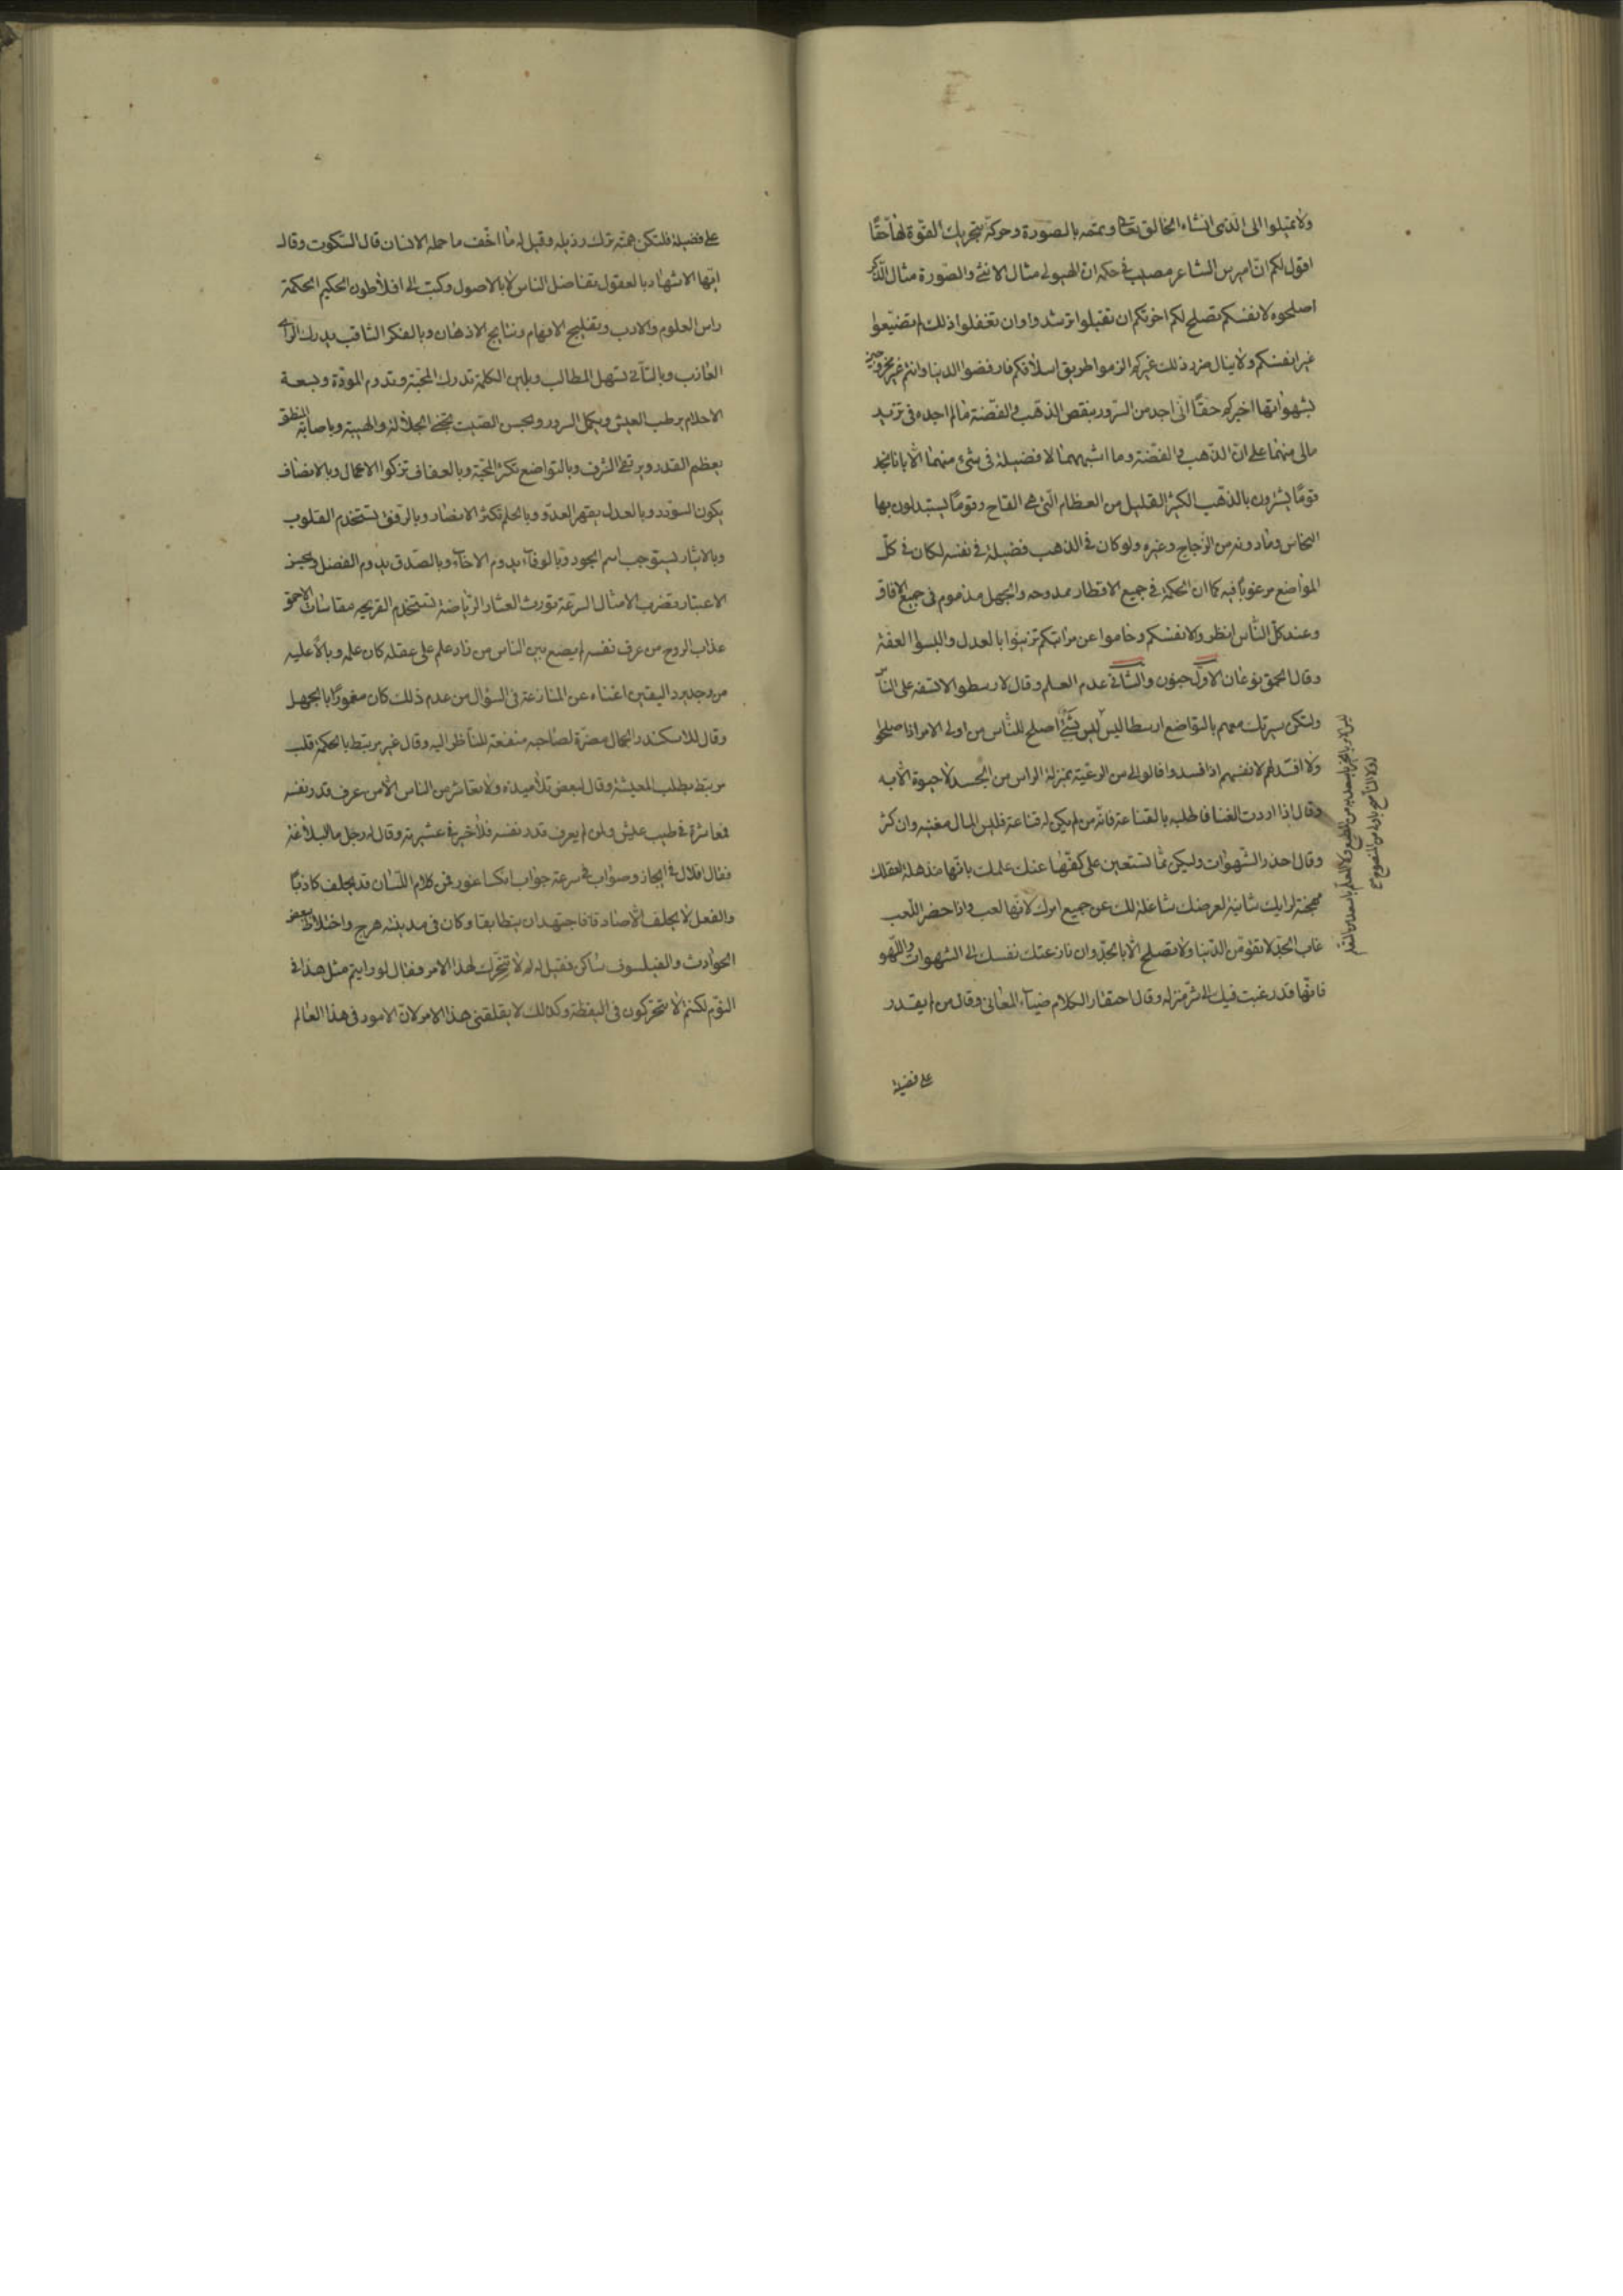 ولا تميلوا الى الذى انشاء الخالق تعالى وتممه بالصورة وحركة بتحريك القوة لها حقا
اقول لكم ان اميرس الشاعر مصيب فى حكمه ان الهيولى مثال الانثى والصورة مثال الذكر
اصلحوه لانفسكم تصلح لكم اخرتكم ان تقبلوا ترشدوا وان تغفلوا ذلك لم تضيعوا
غير انفسكم ولا ينال ضرر ذلك غيركم الزموا طريق اسلافكم فارفضوا الدنيا وانتم غير
بشهواتها اخبركم حقا انى اجد من السرور بنقص الذهب والفضة ما لم اجده فى تزيد
مالى منهما على ان الذهب والفضة وما اشبههما لا فضيلة فى شىء منهما الا بانا نجد
قوما يشترون بالذهب الكثير القليل من العظام التى هى العاج وقوما يستبدلون بها
النحاس وما دونه من الزجاج وغيره ولو كان فى الذهب فضيلة فى نفسه لكان فى كل
المواضع مرغوبا فيه كما ان الحكمة فى جميع الاقطار ممدوحه والجهل مذموم فى جميع الافاق
وعند كل الناس انظروا لانفسكم وحاموا عن مراتبكم تزينوا بالعدل والبسوا العفة
وقال الحمق نوعان الاول جنون والثانى عدم العلم وقال لارسطو لا تسفه على الناس
ولتكن سيرتك معهم بالتواضع ارسطاليس ليس شىء اصلح للناس من اولى الامر اذا صلحوا
ولا افسد لهم لانفسهم اذا فسدوا فالوالى من الرعية بمنزلة الراس من الجسد لا حيوة الا به
وقال اذا اردت الغنا فاطلبه بالقناعة فانه من لم يكن له قناعة فليس المال مغنيه وان كثر
وقال احذر الشهوات وليكن مما تستعين على كفها عنك علمك بانها مذهلة لعقلك
مهجنة لرايك شانية لعرضك شاغلة لك عن جميع امرك لانها لعب واذا حضر اللعب
غاب الجد لا تقوم الدنيا ولا تصلح الا بالجد وان نازعتك نفسك الى الشهوات واللهو
فانها قد رغبت فيك الى شر منزلة وقال اختصار الكلام ضياء المعانى وقال من لم يقدر
على فضيلة
على فضيلة فلتكن همته ترك رذيلة وقيل له ما اخف ما حمله الانسان قال السكوت وقال
ايها الاشهاد بالعقول تفاضل الناس لا بالاصول وكتب الى افلاطون الحكيم الحكمة
راس العلوم والادب وتلقيح الافهام ونتايج الاذهان وبالفكر الثاقب يدرك الراى
العازب وبالتانى تسهل المطالب وبلين الكلمة تدرك المحبة وتدوم المودة وبسعة
الاخلاق يطيب العيش ويكمل السرور وبحسن الصمت تجتنى الجلالة والهيبة وباصابة المنطق
يعظم القدر ويرتقى الشرف وبالتواضع تكثر المحبة وبالعفاف تزكوا الاعمال وبالانصاف
يكون السودد وبالعدل يقهر العدو وبالحلم تكثر الانصار وبالرفق تستخدم القلوب
وبالايثار يستوجب اسم الجود وبالوفاء يدوم الاخاء وبالصدق يدوم الفضل وبحسن
الاعتبار تضرب الامثال السرعة تورث العثار الرياضة تستخدم القريحه مقاسات الاحمق
عذاب الروح من عرف نفسه لم يضع بين الناس من زاد علمه على عقله كان علمه وبالا عليه
من وجد برد اليقين اغناه عن المنازعة فى السؤال من عدم ذلك كان مغمورا بالجهل
وقال للاسكندر الجمال مضرة لصاحبه منفعة للناظر اليه وقال غير مرتبط بالحكمة قلب
مرتبط بطلب المعيشة وقال لبعض تلاميذه ولا تعاشر من الناس الا من عرف قدر نفسه
فعاشره فى طيب عيش ومن لم يعرف قدر نفسه فلا خير فى عشيرته وقال له رجل ما البلاغة
فقال اقلال فى ايجاز وصواب فى سرعة جواب انكساغورس من كلام اللسان قد يحلف كاذبا
والفعل لا يحلف الا صادقا فاجتهد ان يتطابقا وكان فى مدينته هرج واختلاط ببعض
الحوادث والفيلسوف ساكن فقيل له لم لا تتحرك لهذا الامر فقال لو رايتم مثل هذا فى
النوم لكنتم لا تتحركون فى اليقظة وكذلك لا يقلقنى هذا الامر لان الامور فى هذا العالم